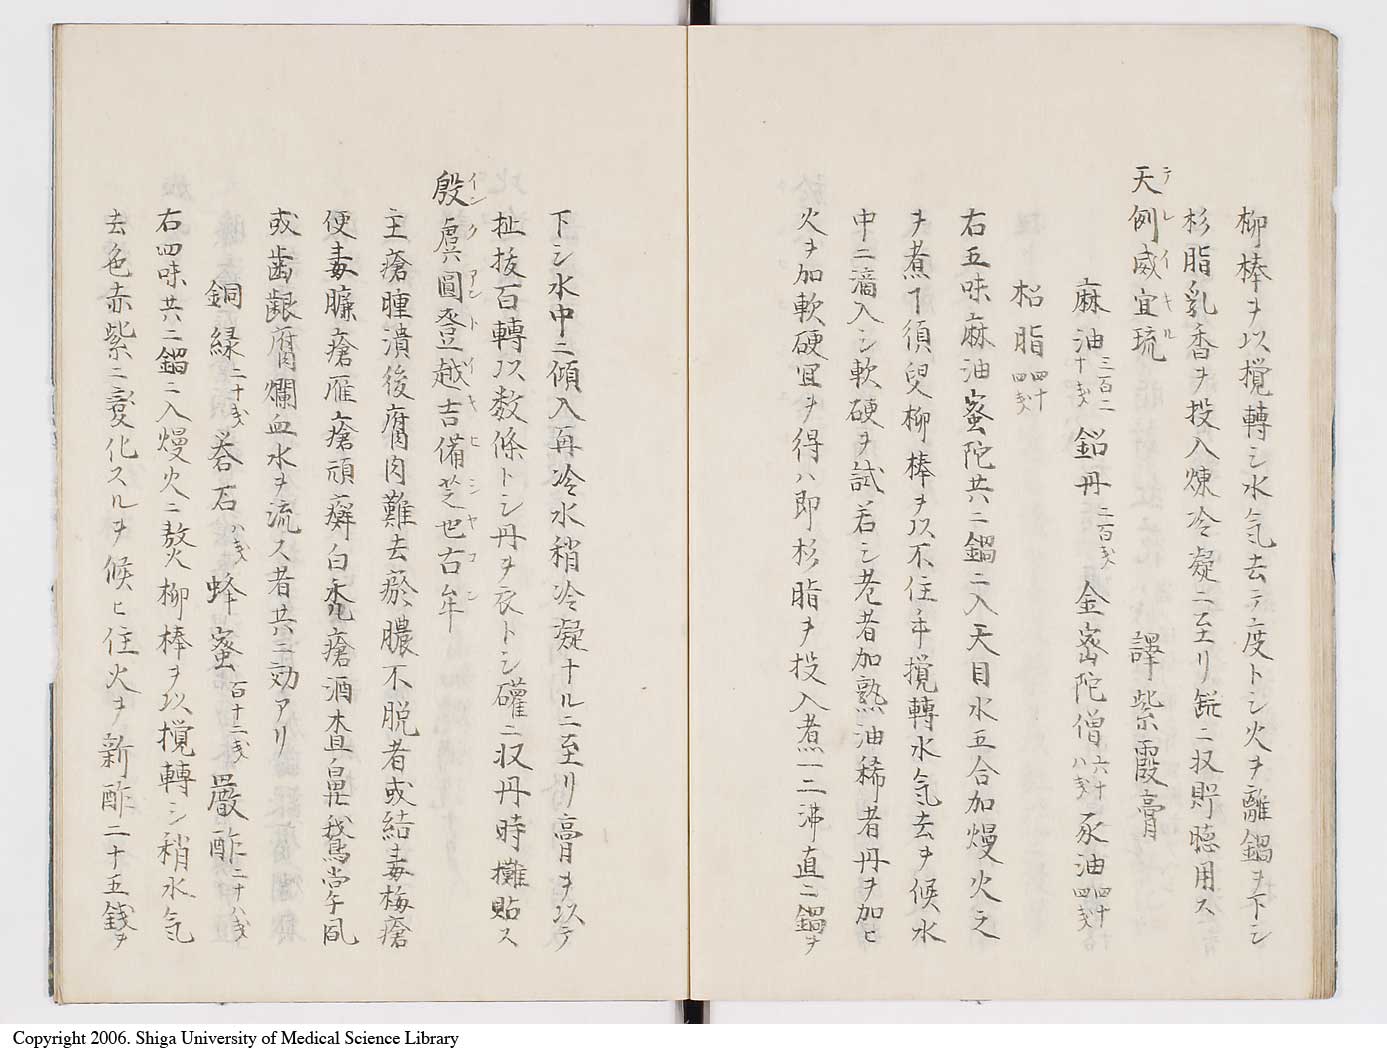 柳棒ヲ以攪轉シ水気去テ度トシ火ヲ離鍋ヲ下シ
杉脂乳香ヲ投入煉冷凝ニ至リ磁ニ収貯聴用ス
天例威宜琉 譯紫霞膏
テレイキル
麻油三百二十戔 鉛丹二百戔 金密陀僧六十八戔 豕油四十四戔
松脂四十四戔
右五味麻油蜜陀共ニ鍋ニ入天目水五合加熳火之
ヲ煮了須臾柳棒ヲ以不住手攪轉水気去ヲ候水
中ニ滴入シ軟硬ヲ試若シ老者加熟油稀者丹ヲ加ヒ
火ヲ加軟硬宜ヲ得ハ即杉脂ヲ投入煮一二沸直ニ鍋ヲ
下シ水中ニ傾入再冷水稍冷凝ナルニ至リ膏ヲ以テ
扯抜百轉以数條トシ丹ヲ衣トシ礶ニ収丹時攤貼ス
殷虞圓登越吉備芝也古牟
インクアントイキヒシヤコン
主瘡腫潰後腐肉難去瘀膿不脱者或結毒梅瘡
便毒臁瘡雁瘡頑癬白禿瘡酒査鼻鵞掌風
或歯齦腐爛血水ヲ流ス者共ニ効アリ
銅緑二十戔 礬石八戔 蜂蜜百十二戔 嚴酢二十八戔
右四味共ニ鍋ニ入熳火ニ熬柳棒ヲ以攪轉シ稍水気
去色赤紫ニ変化スルヲ候ヒ住火ヲ新酢二十五錢ヲ
Copyright 2006. Shiga University of Medical Science Library